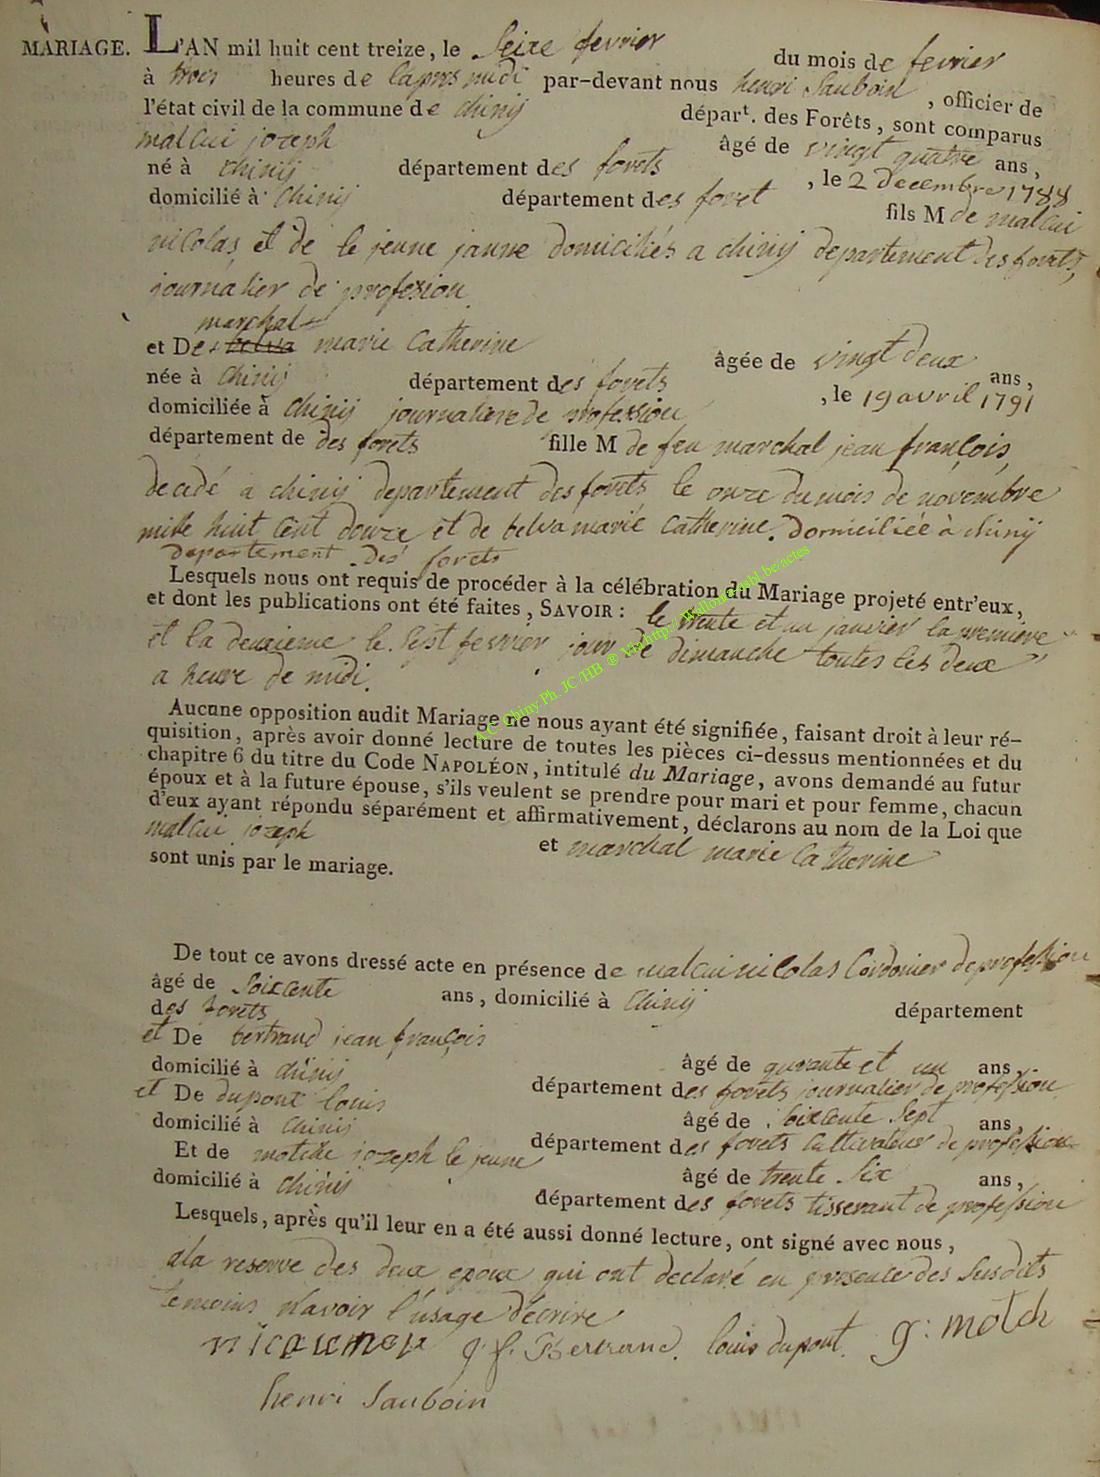 MARIAGE. L'AN mil huit cent treize, le Seize fevrier du mois de fevrier
à trois heures de lapres midi par-devant nous henri Sauboin, officier de
l'état civil de la commune de chinij dépar^t. des Forêts, sont comparus
malcui jozeph âgé de vingt quatre ans,
né à chinij département des forêts, le 2 decembre 1788
domicilié à chinij département des foret fils M de malcui
nicolas et de le jeune janne domiciliés a chinij departement des forêts,
journalier de profession
marchal
et De belva marie Catherine âgée de vingt deux ans,
née à chinij département des forêts, le 19 avril 1791
domiciliée à chinij journaliere de profession
département de des forêts fille M de feu marchal jean françois
decédé a chinij departement des forêts le onze du mois de novembre
mille huit cent douze et de belva marie Catherine. Domiciliée à chinij
departement des forets
Lesquels nous ont requis de procéder à la célébration du Mariage projeté entr'eux,
et dont les publications ont été faites, SAVOIR : le trente et un janvier la premiere
et la deuxieme le sept fevrier jour de dimanche toutes les deux
a heure de midi.
Aucune opposition audit Mariage ne nous ayant été signifiée, faisant droit à leur ré-
quisition, après avoir donné lecture de toutes les pièces ci-dessus mentionnées et du
chapitre 6 du titre du Code NAPOLÉON, intitulé du Mariage, avons demandé au futur
époux et à la future épouse, s'ils veulent se prendre pour mari et pour femme, chacun
d'eux ayant répondu séparément et affirmativement, déclarons au nom de la Loi que
malcui jozeph et marchal marie Catherine
sont unis par le mariage.
De tout ce avons dressé acte en présence de malcui nicolas Cordonier de profession
âgé de Soixcente ans, domicilié à Chinij département
des forets
et De bertrand jean françois âgé de qurante et un ans,
domicilié à chinij département des forêts journalier de profession
et De dupont louis âgé de Soixcente Sept ans,
domicilié à chinij département des forets Cultivateur de profession
Et de motche jozeph le jeune âgé de trente Six ans,
domicilié à chinij département des forets tisserant de profession
Lesquels, après qu'il leur en a été aussi donné lecture, ont signé avec nous,
ala reserve des deux epoux qui ont declaré en presence des Susdits
temoins n'avoir l'usage d'ecrire
j f Bertrand. louis dupont. g: motch
henri Sauboin